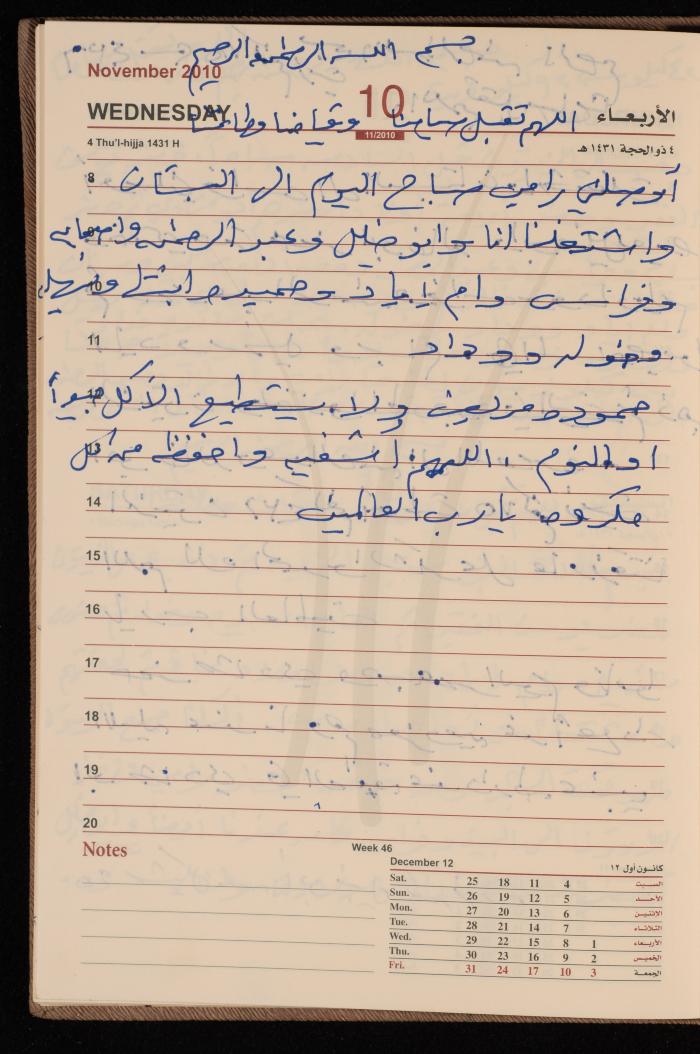 بسم الله الرحمن الرحيم
November 2010
WEDNESDAY
10
11/2010
الأربعـاء
اللهم تقبل منا وقيامنا وطاعتنا
4 Thu'l-hijja 1431 H
٤ ذو الحجة ١٤٣١ هـ
8 أوصلني رامي صباح اليوم الى البستان
واشتغلنا انا وابو خليل وعبد الرحمن
10 وفراس وام اياد وحميده
11 وخوله ووداد
12 حموده مريض ولا يستطيع الأكل جيداً
13 او النوم . اللهم اشفيه واحفظه من كل
14 مكروه يا رب العالمين
15
16
17
18
19
20
Notes
Week 46
December 12 كانـون أول ١٢
Sat. 25 18 11 4 السـبت
Sun. 26 19 12 5 الأحـد
Mon. 27 20 13 6 الاثنين
Tue. 28 21 14 7 الثلاثاء
Wed. 29 22 15 8 1 الأربعاء
Thu. 30 23 16 9 2 الخميس
Fri. 31 24 17 10 3 الجمعـة